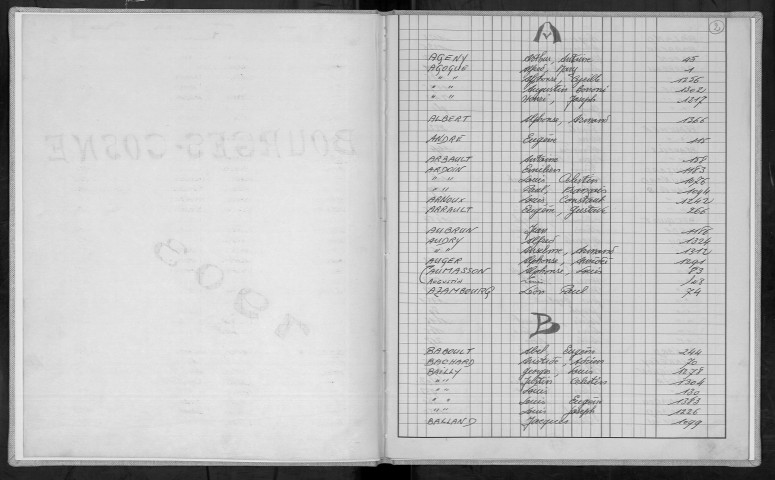 BOURGES-COSNE
1902
2
A
AGENY Arthur, Antoine 45
AGOGUÉ Alfred, 1
" " Alphonse, Cyrille 1226
" " Augustin 1302
" " Henri, Joseph 1217
ALBERT Alphonse, Armand 1266
ANDRÉ Eugène 115
ARBAULT Antoine 158
ARDOIN Emilien 1183
" " Louis Célestin 1176
" " Paul, François 1094
ARNOUX Louis Constant 1242
ARRAULT Eugène, Gustave 266
AUBRUN Jean 1186
AUDRY Alfred 1324
" " Anselme, Armand 1312
AUGER Alphonse, Amédée 1291
AUMASSON Alphonse, Louis 83
AUGUSTIN Louis 108
AZAMBOURG Léon Paul 74
B
BABOULT Abel Eugène 244
BACHARD 70
BAILLY Georges, Louis 1278
" " Justin Célestin 1304
" " Louis 130
" " Louis Eugène 1383
" " Louis Joseph 1226
BALLAND Jacques 1099